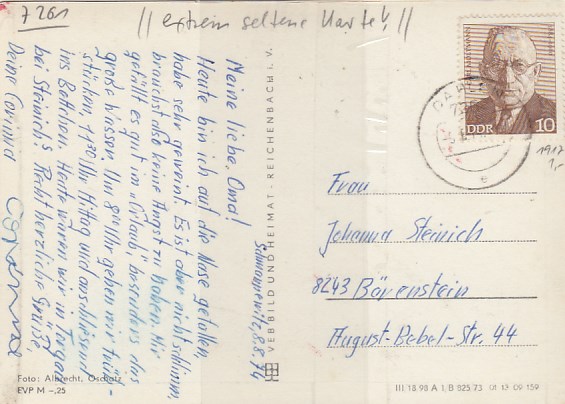 7261
// extrem seltene Karte! //
Schmannewitz, 8.8.74
Meine liebe Oma!
Heute bin ich auf die Nase gefallen,
habe sehr geweint. Es ist aber nicht schlimm,
brauchst also keine Angst zu haben. Mir
gefällt es gut im Urlaub, besonders das
große Wasser. Um 8⁰⁰ Uhr gehen wir früh-
stücken, 11.30 Uhr Mittag und anschliesend
ins Bettchen. Heute waren wir in Torgau
bei Steinichs. Recht herzliche Grüsse,
Deine Corinna
Corinna
Foto: Albrecht, Oschatz
EVP M –,25
VEB BILD UND HEIMAT · REICHENBACH I. V.
DDR 10
DAHLEN
e
1917
1,-
Frau
Johanna Steinich
8243 Bärenstein
August-Bebel-Str. 44
III 18 98 A 1, B 825/73 01 13 09 159